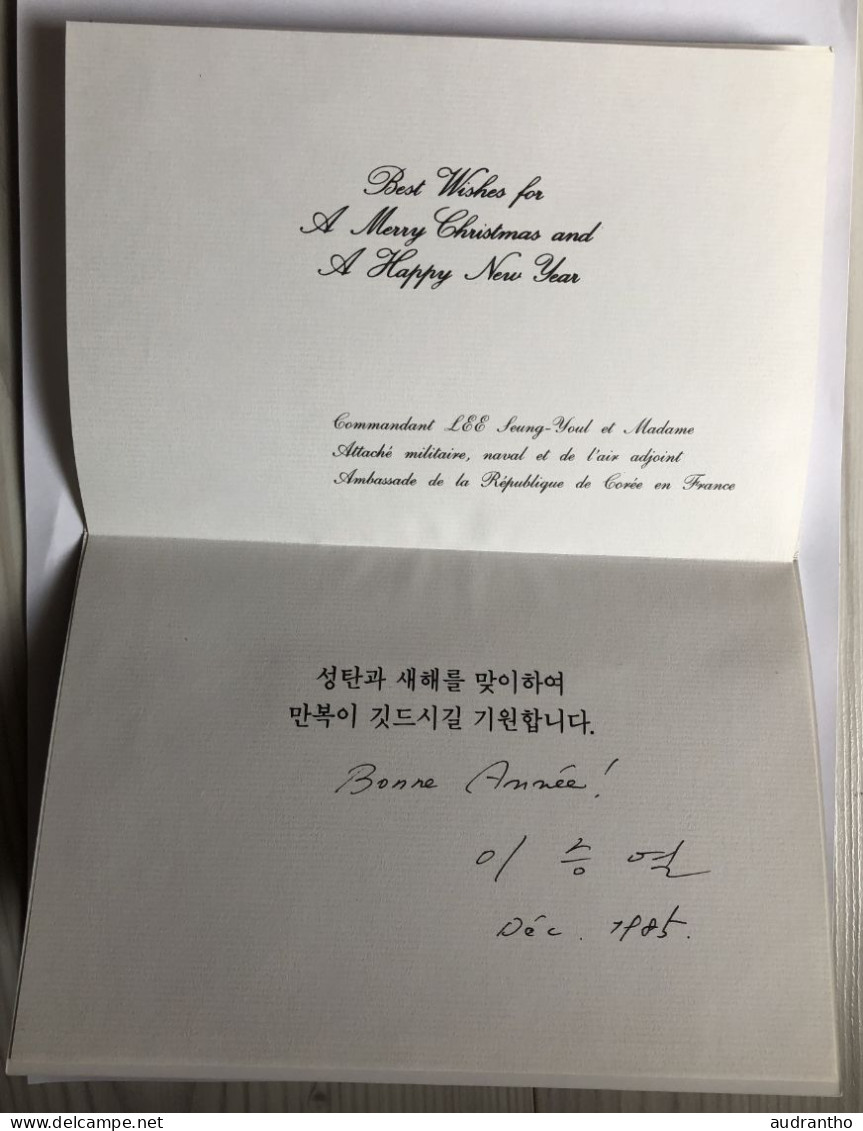 Best Wishes for
A Merry Christmas and
A Happy New Year
Commandant LEE Seung-Youl et Madame
Attaché militaire, naval et de l'air adjoint
Ambassade de la République de Corée en France
성탄과 새해를 맞이하여
만복이 깃드시길 기원합니다.
Bonne Année!
이 승 열
Déc. 1985.
delcampe.net
audrantho